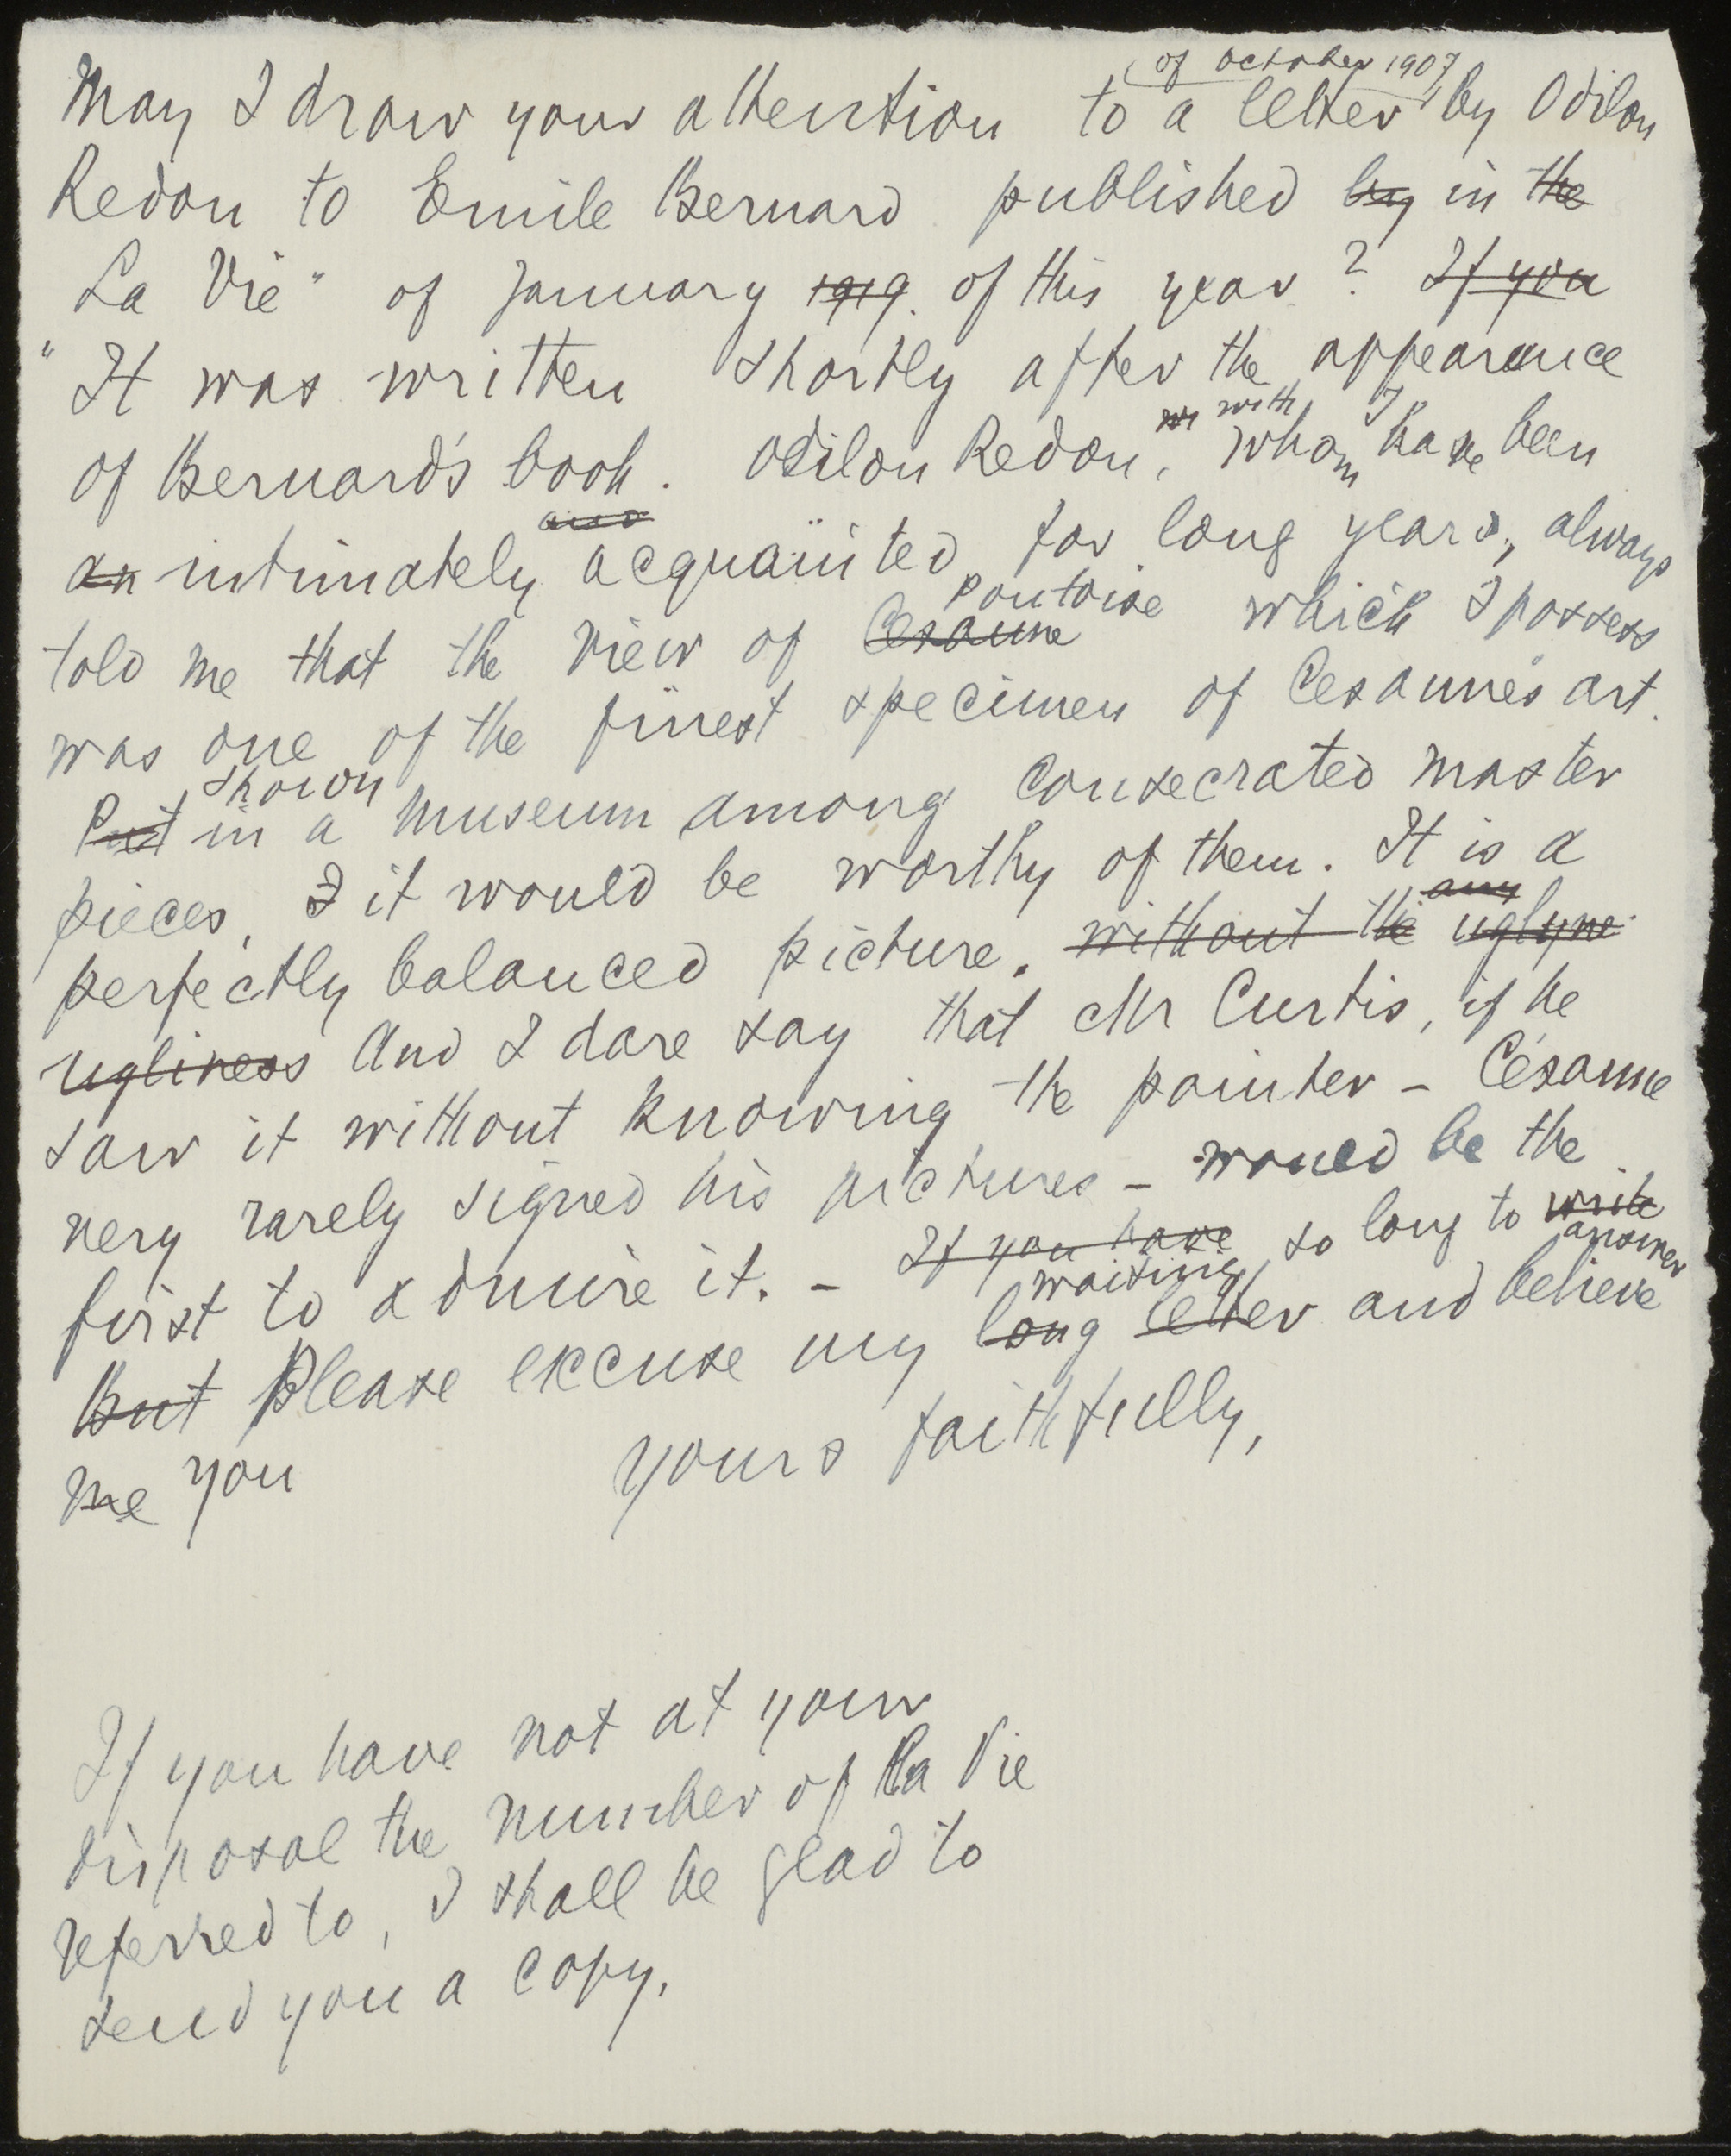 of October 1907
May I draw your attention to a letter by Odilon
Redon to Emile Bernard published by in the
La Vie" of January 1919. of this year? If you
"It was written shortly after the appearance
with I
of Bernard's book. Odilon Redon, whom have been
and
an intimately acquainted for long years, always
Pontoise
told me that the view of Cesanne which I possess
was one of the finest specimen of Cesanne's art.
shown
Put in a museum among consecrated master
pieces, I it would be worthy of them. It is a
any
perfectly balanced picture. without the uglyne
ugliness And I dare say that Mr Curtis, if he
saw it without knowing the painter - Césanne
very rarely signed his pictures - would be the
first to admire it. - If you have so long to write
waiting answer
But Please excuse my long letter and believe
me you yours faithfully,
If you have not at your
disposal the number of La Vie
referred to, I shall be glad to
send you a copy.